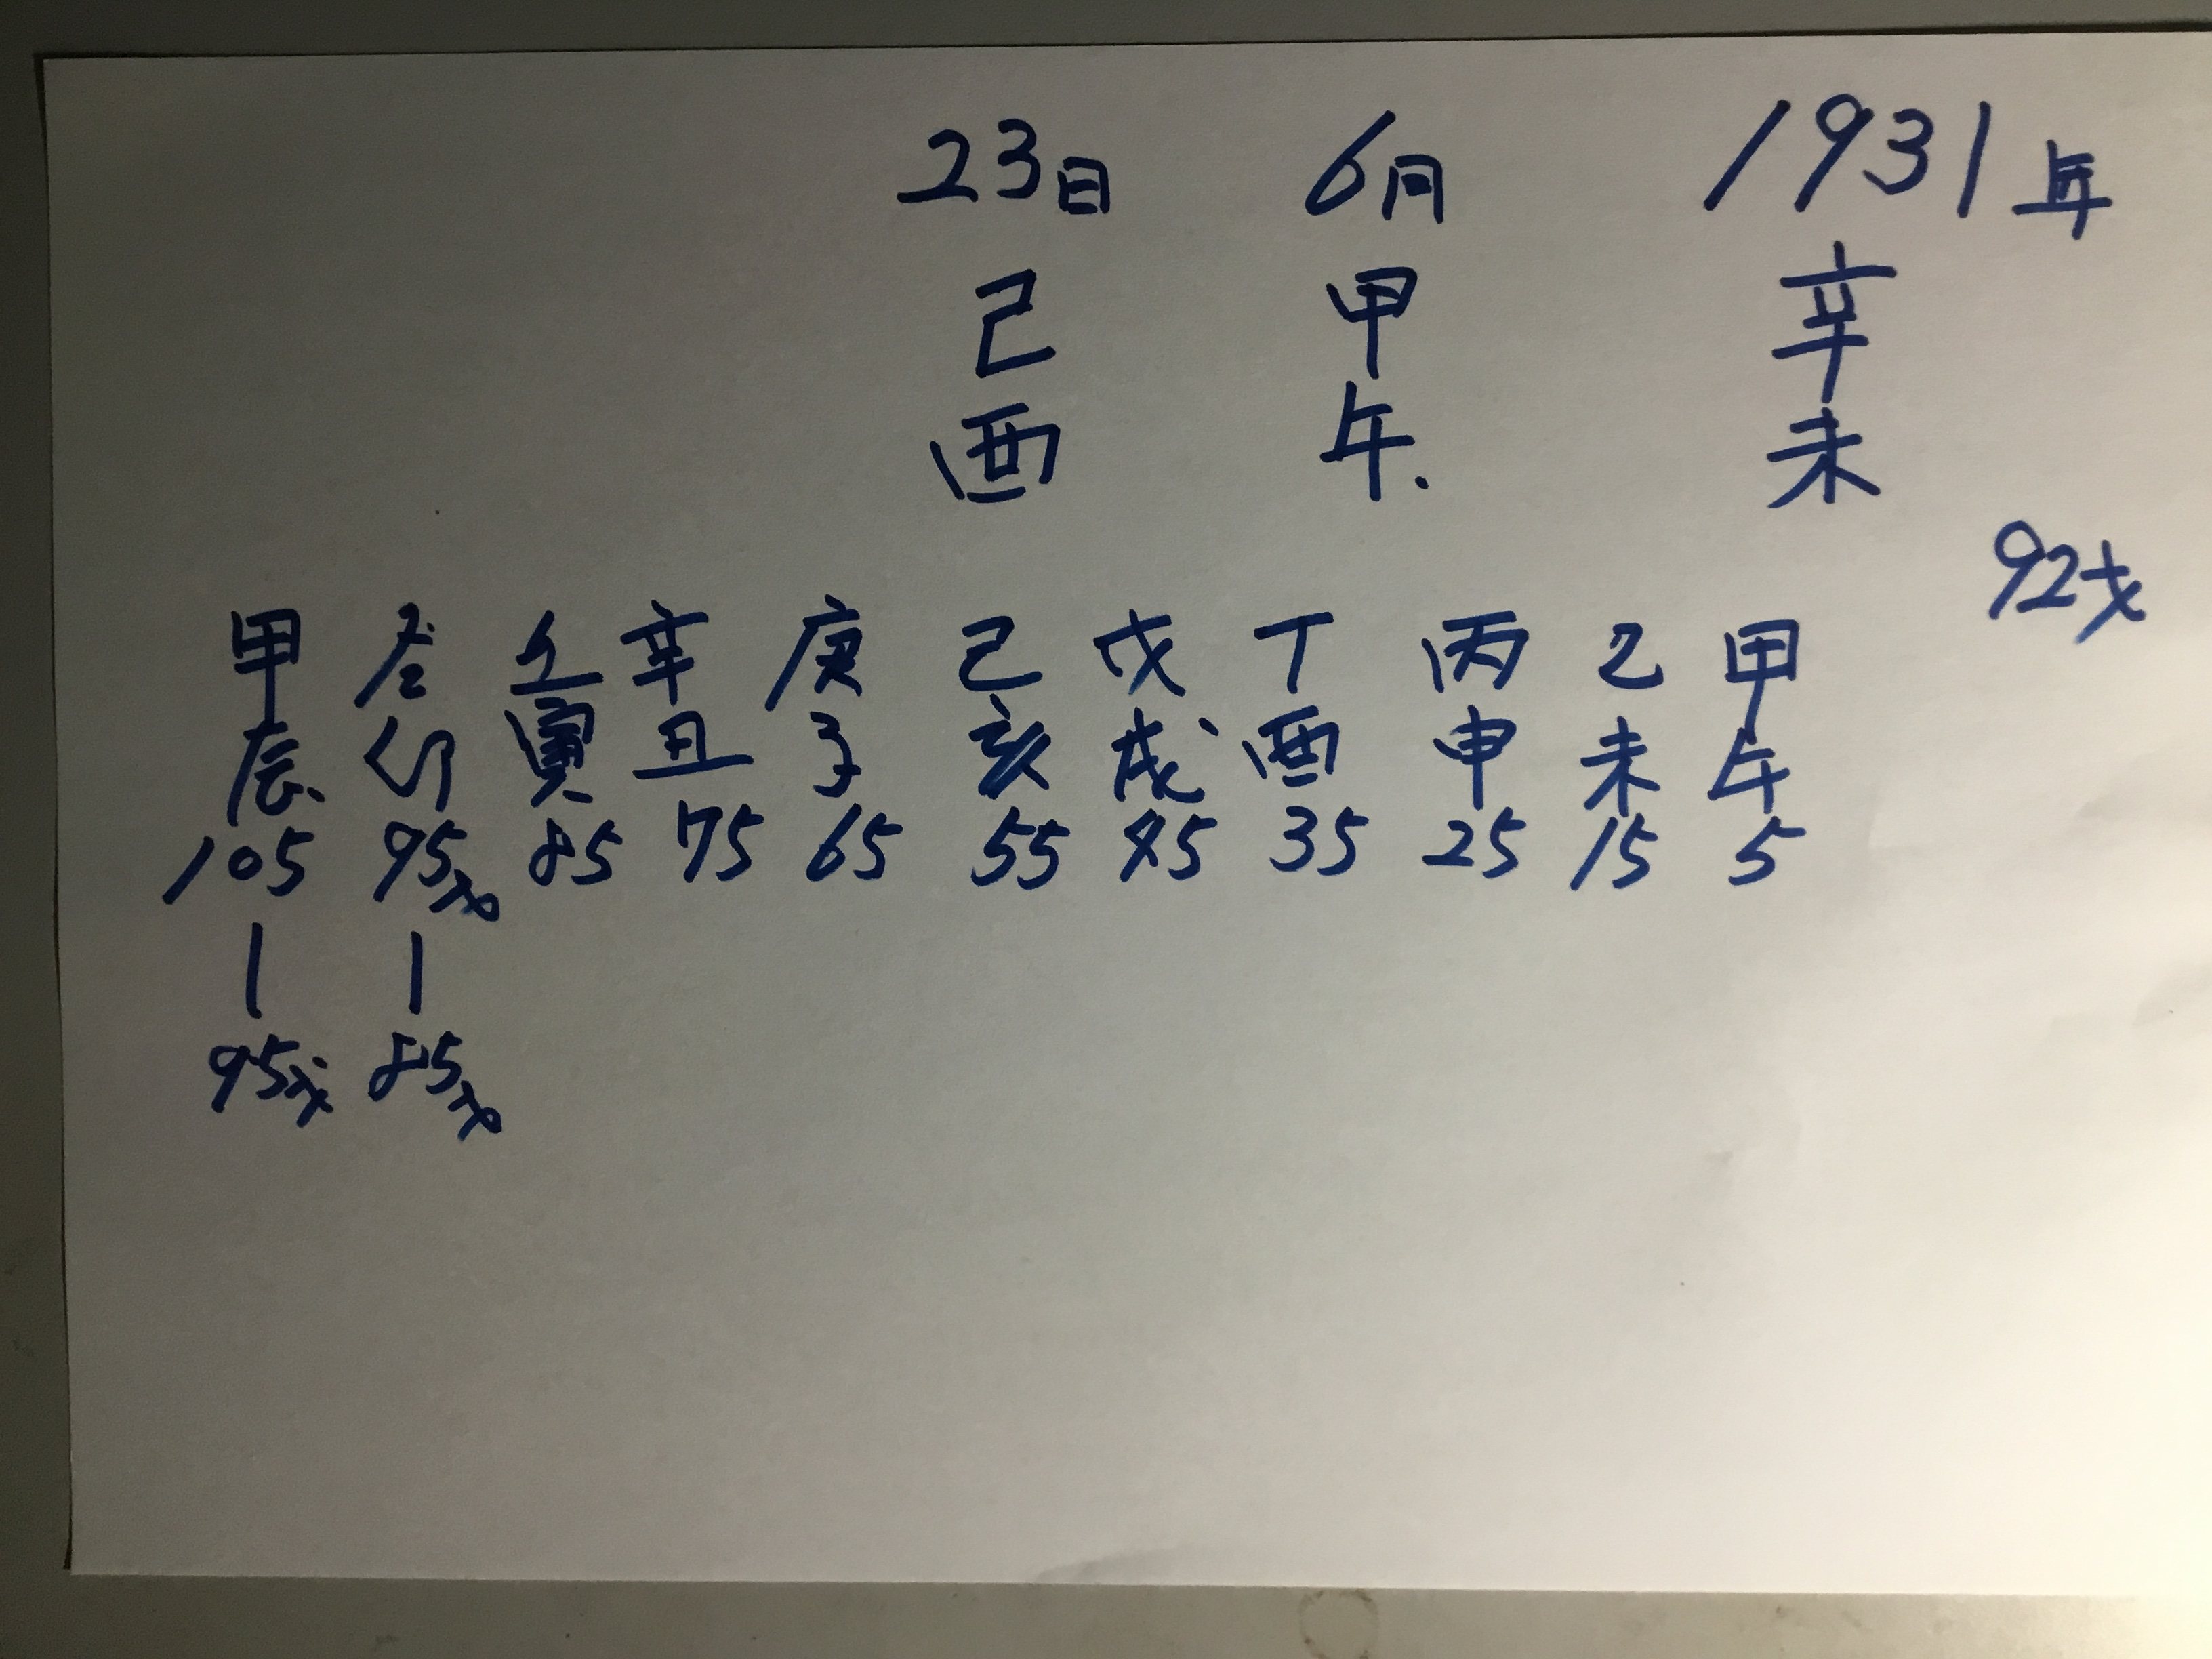 23日 6月 1931年
己 甲 辛
酉 午. 未
92才
甲 癸 壬 辛 庚 己 戊 丁 丙 乙 甲
辰 卯 寅 丑 子 亥 戌 酉 申 未 午
105 95才 85 75 65 55 45 35 25 15 5
| |
95才 85才